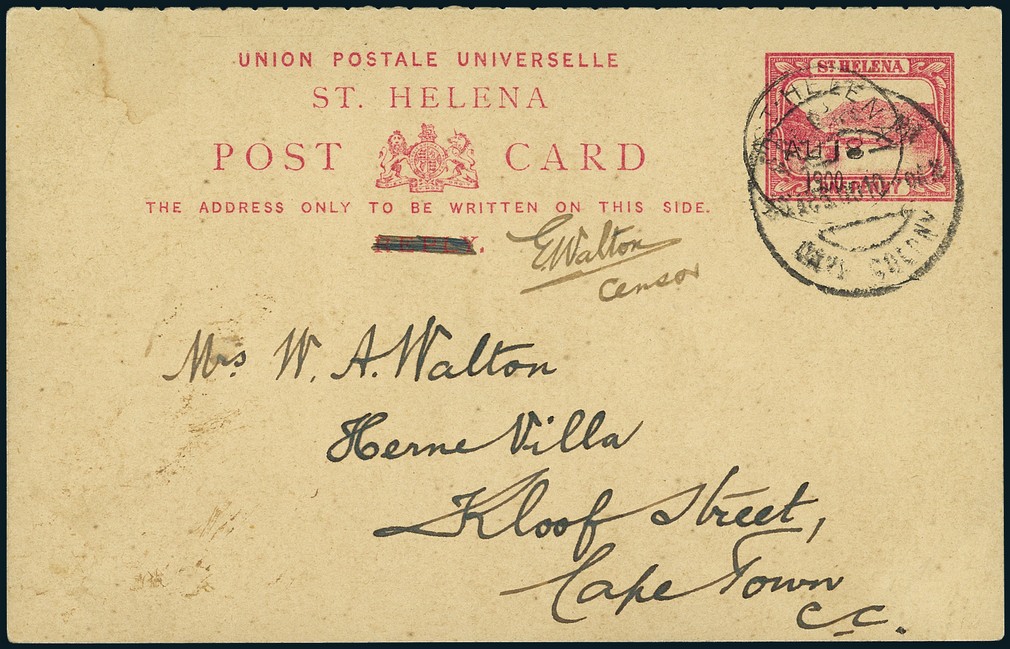 UNION POSTALE UNIVERSELLE
ST. HELENA
POST CARD
THE ADDRESS ONLY TO BE WRITTEN ON THIS SIDE.
ST HELENA
ST. HELENA
AU 18
1900
E. Walton
censor
Mrs W. A. Walton
Herne Villa
Kloof Street,
Cape Town
C.C.